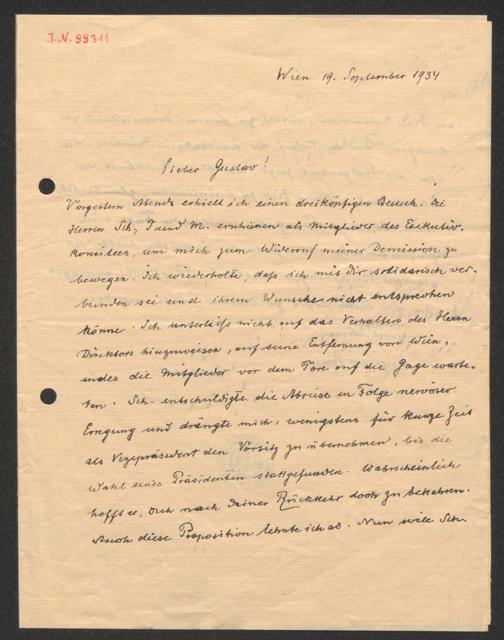 J.N. 99311
Wien 19. September 1934
Lieber Gustav!
Vorgestern Abends erhielt ich einen dreiköpfigen Besuch. Die
Herren Sch, J und M. erschienen als Mitglieder des Exekutiv-
komitees, um mich zum Widerruf meiner Demission zu
bewegen. Ich wiederholte, daß ich mit Dir solidarisch ver-
bunden sei und ihrem Wunsche nicht entsprechen
könne. Ich unterließ nicht auf das Verhalten des Herrn
Direktors hinzuweisen, auf seine Entfernung von Wien,
indes die Mitglieder vor dem Tore auf die Gage warte-
ten. Sch. entschuldigte die Abreise in Folge nervöser
Erregung und drängte mich, wenigstens für kurze Zeit
als Vizepräsident den Vorsitz zu übernehmen, bis die
Wahl eines Präsidenten stattgefunden. Wahrscheinlich
hofft er, Dich nach Deiner Rückkehr doch zu bekehren.
Auch diese Proposition lehnte ich ab. Nun will Sch.